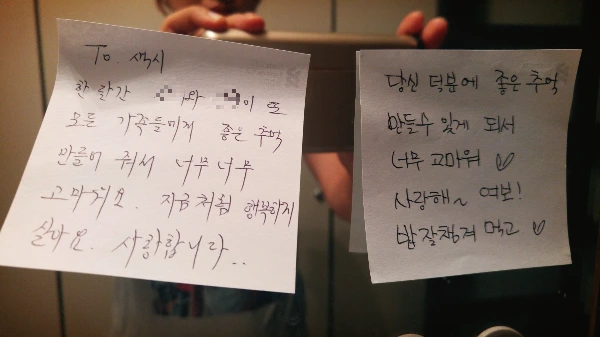 To. 색시
한 달간 와 이 또
모든 가족들에게 좋은 추억
만들어 줘서 너무너무
고마워요. 지금처럼 행복하지
살아요. 사랑합니다..
당신 덕분에 좋은 추억
만들수 있게 되서
너무 고마워 ♡
사랑해~ 여보!
밥 잘챙겨 먹고 ♡